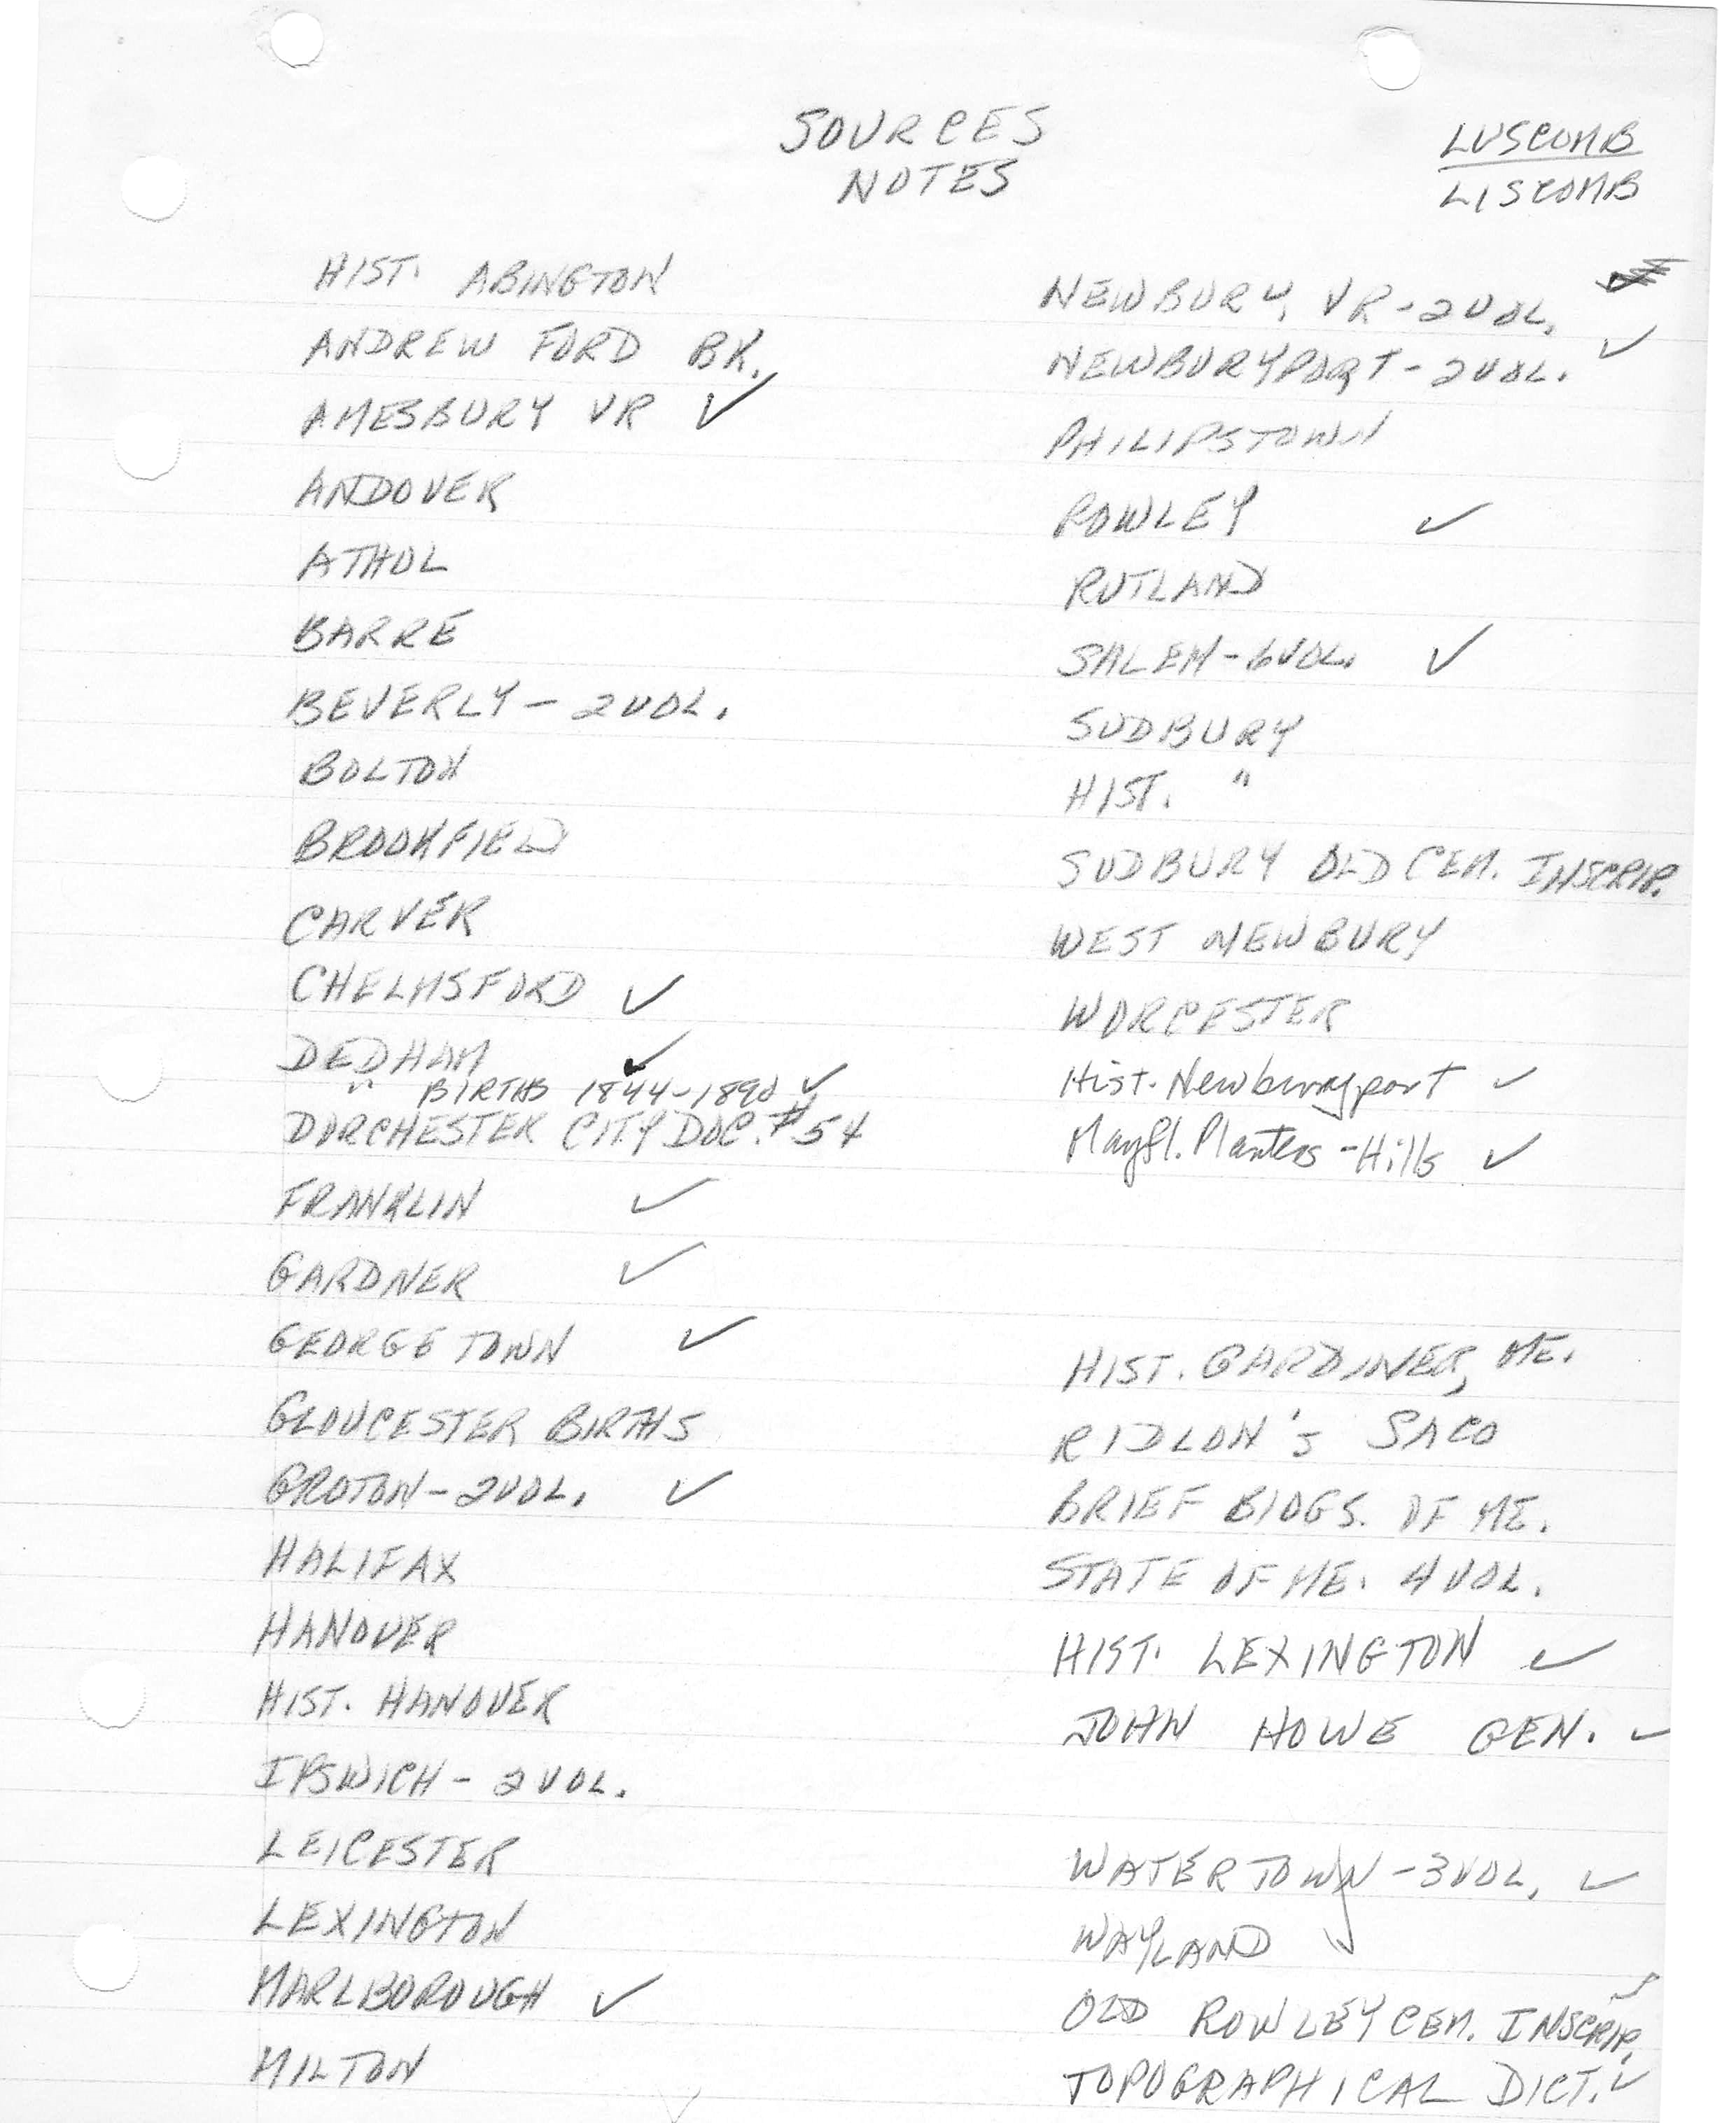 SOURCES
NOTES
LUSCOMB
LISCOMB
HIST. ABINGTON
ANDREW FORD BK.
AMESBURY VR ✓
ANDOVER
ATHOL
BARRE
BEVERLY - 2 VOL.
BOLTON
BROOKFIELD
CARVER
CHELMSFORD ✓
DEDHAM ✓
" BIRTHS 1844-1890 ✓
DORCHESTER CITY DOC. #54
FRANKLIN ✓
GARDNER ✓
GEORGETOWN ✓
GLOUCESTER BIRTHS
GROTON - 2 VOL. ✓
HALIFAX
HANOVER
HIST. HANOVER
IPSWICH - 2 VOL.
LEICESTER
LEXINGTON
MARLBOROUGH ✓
MILTON
NEWBURY, VR - 2 VOL.
NEWBURYPORT - 2 VOL. ✓
PHILIPSTOWN
ROWLEY ✓
RUTLAND
SALEM - 6 VOL. ✓
SUDBURY
HIST. "
SUDBURY OLD CEM. INSCRIP.
WEST NEWBURY
WORCESTER
Hist. Newburyport ✓
Mayfl. Planters - Hills ✓
HIST. GARDINER, ME.
RIDLON'S SACO
BRIEF BIOGS. OF ME.
STATE OF ME. 4 VOL.
HIST. LEXINGTON ✓
JOHN HOWE GEN. ✓
WATERTOWN - 3 VOL. ✓
WAYLAND ✓
OLD ROWLEY CEM. INSCRIP. ✓
TOPOGRAPHICAL DICT. ✓